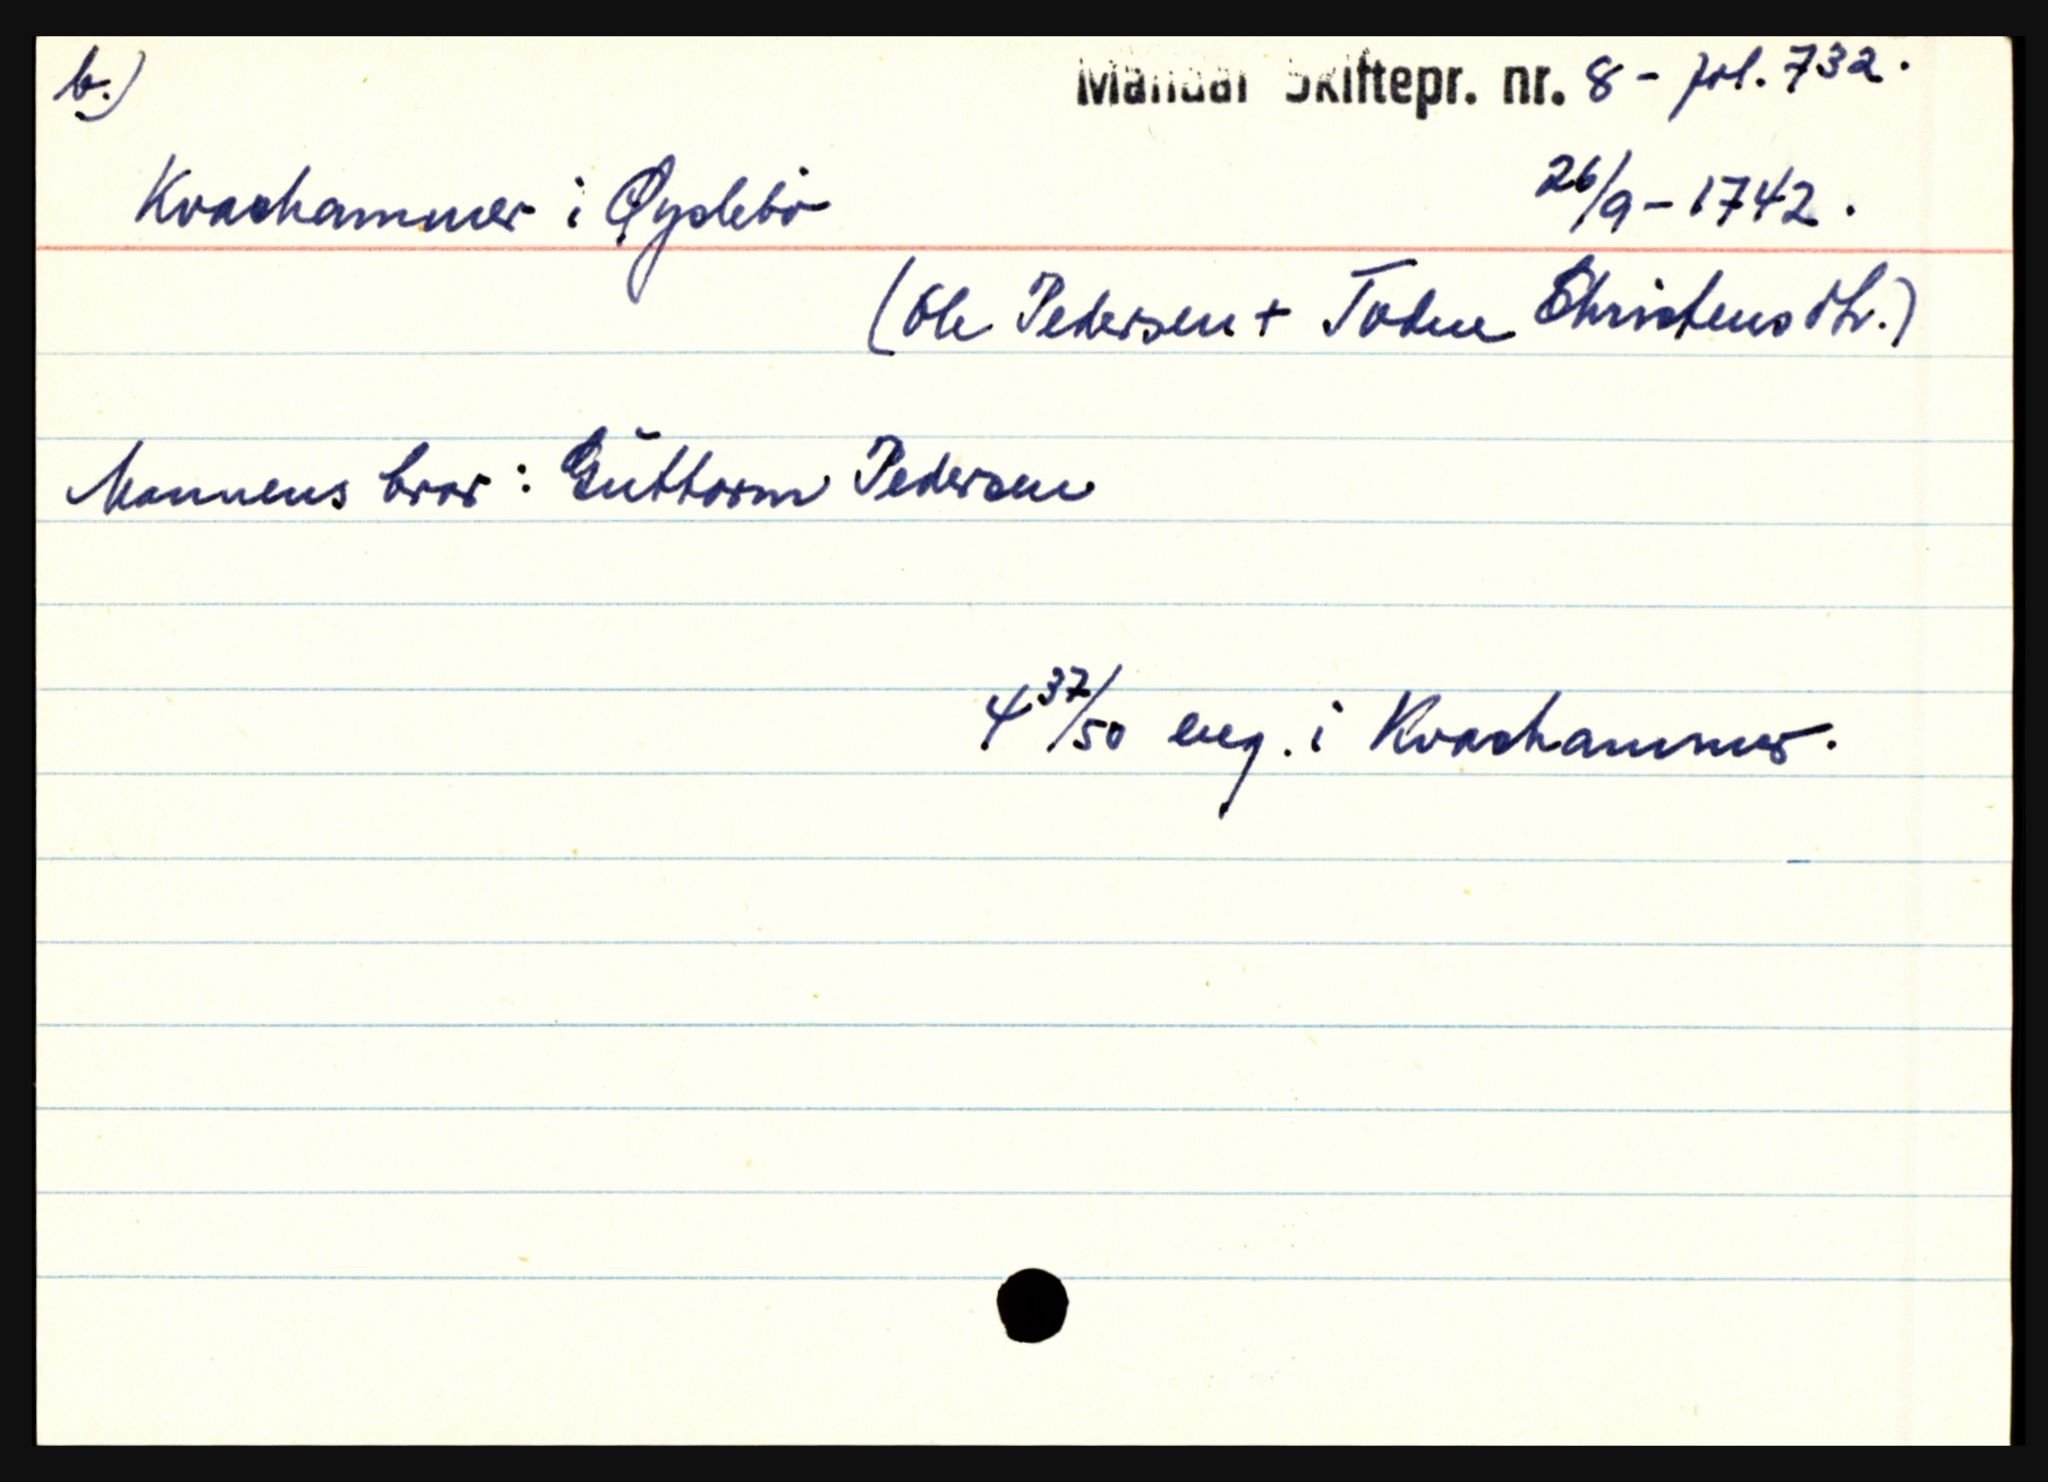 b.)
Mandal Skiftepr. nr. 8 - fol. 732.
Kvashammer i Øyslebö 26/9 - 1742.
(Ole Pedersen + Todne Christensdtr.)
Mannens bror: Guttorm Pedersen
4 37/50 eng. i Kvashammer.